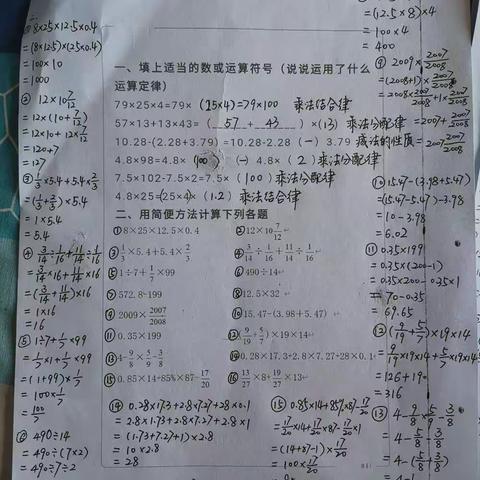 ① 8×25×12.5×0.4
=(8×12.5)×(25×0.4)
=100×10
=1000
② 12×10 7/12
=12×(10+7/12)
=12×10+12×7/12
=120+7
=127
③ 1/3×5.4+5.4×2/3
=(1/3+2/3)×5.4
=1×5.4
=5.4
④ 3/14÷1/16+11/14÷1/16
=3/14×16+11/14×16
=(3/14+11/14)×16
=1×16
=16
⑤ 1÷7+1/7×99
=1/7×1+1/7×99
=(1+99)×1/7
=100×1/7
=100/7
⑥ 490÷14
=490÷(7×2)
=490÷7÷2
一、填上适当的数或运算符号（说说运用了什么
运算定律）
79×25×4=79×（25×4）=79×100 乘法结合律
57×13+13×43=（57+43）×(13) 乘法分配律
10.28-(2.28+3.79)=10.28-2.28（一）3.79 减法的性质
4.8×98=4.8×（100）（一）4.8×（2）乘法分配律
7.5×102-7.5×2=7.5×（100）乘法分配律
4.8×25=(25×4)×（1.2）乘法结合律
二、用简便方法计算下列各题
①8×25×12.5×0.4 ②12×10 7/12
③1/3×5.4+5.4×2/3 ④3/14÷1/16+11/14÷1/16
⑤1÷7+1/7×99 ⑥490÷14
⑦572.8-199 ⑧12.5×32
⑨2009×2007/2008 ⑩15.47-(3.98+5.47)
⑪0.35×199 ⑫(9/19+5/7)×19×14
⑬4-9/8×5/9-3/8 ⑭0.28×17.3+2.8×7.27+28×0.1
⑮0.85×14+85%×87-17/20 ⑯13/27×8+19/27×13
⑭ 0.28×17.3+2.8×7.27+28×0.1
=2.8×1.73+2.8×7.27+2.8×1
=(1.73+7.27+1)×2.8
=10×2.8
=28
⑮ 0.85×14+85%×87-17/20
=17/20×14+17/20×87-17/20×1
=(14+87-1)×17/20
=100×17/20
=(12.5×8)×4
=100×4
=400
⑨ 2009×2007/2008
=(2008+1)×2007/2008
=2008×2007/2008+1×2007/2008
=2007+2007/2008
=2007 2007/2008
⑩ 15.47-(3.98+5.47)
=(15.47-5.47)-3.98
=10-3.98
=6.02
⑪ 0.35×199
=0.35×(200-1)
=0.35×200-0.35×1
=70-0.35
=69.65
⑫ (9/19+5/7)×19×14
=9/19×19×14+5/7×19×14
=126+190
=316
⑬ 4-9/8×5/9-3/8
=4-5/8-3/8
=4-(5/8+3/8)